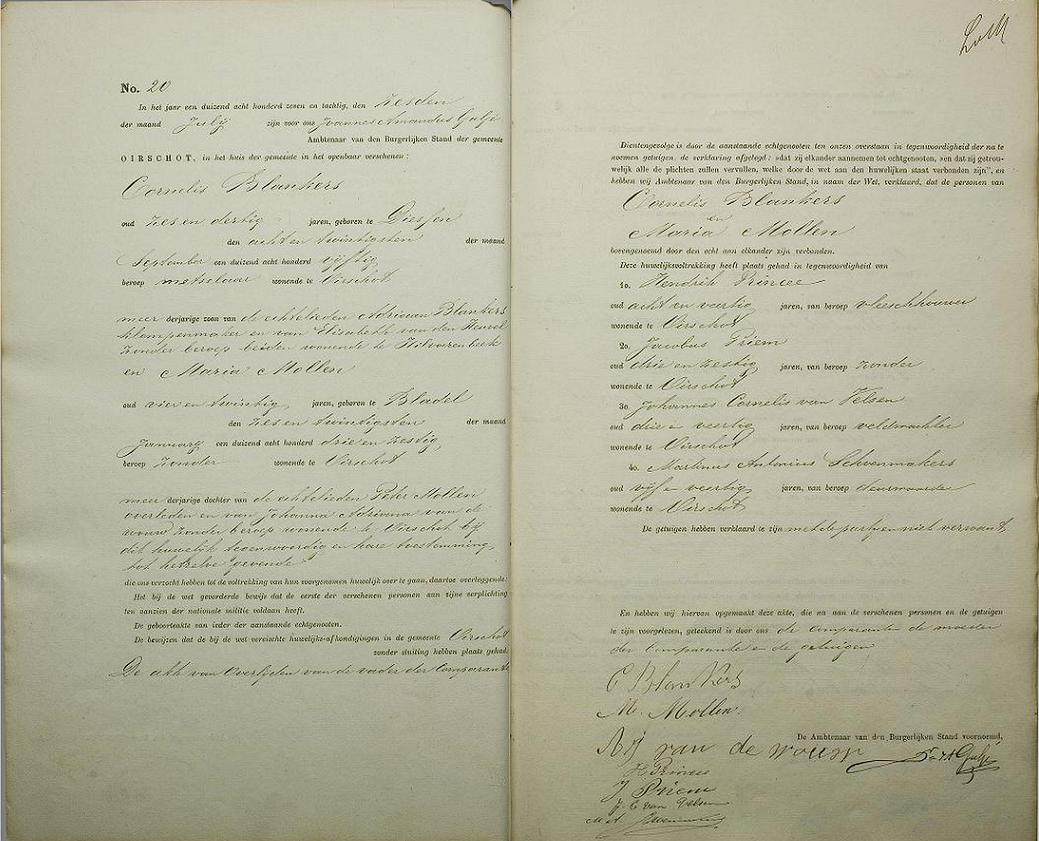 No. 20
In het jaar een duizend acht honderd zeven en tachtig, den zesden
der maand July zijn voor ons Joannes Amandus Guljé
Ambtenaar van den Burgerlijken Stand der gemeente
OIRSCHOT, in het huis der gemeente in het openbaar verschenen:
Cornelis Blankers
oud zes en dertig jaren, geboren te Diessen
den acht en twintigsten der maand
September een duizend acht honderd vijftig
beroep metselaar wonende te Oirschot
meer derjarige zoon van de echtelieden Adriaan Blankers
klompenmaker en van Elisabeth van den Heuvel
zonder beroep beiden wonende te Hilvarenbeek
en Maria Mollen
oud vier en twintig, jaren, geboren te Bladel
den zes en twintigsten der maand
January een duizend acht honderd drie en zestig,
beroep zonder wonende te Oirschot
meer derjarige dochter van de echtelieden Peter Mollen
overleden en van Johanna Adriana van de
wouw zonder beroep wonende te Oirschot bij
dit huwelijk tegenwoordig en hare toestemming
tot hetzelve gevende
die ons verzocht hebben tot de voltrekking van hun voorgenomen huwelijk over te gaan, daartoe overleggende:
Het bij de wet gevorderde bewijs dat de eerste der verschenen personen aan zijne verplichting
ten aanzien der nationale militie voldaan heeft.
De geboorteakte van ieder der aanstaande echtgenooten.
De bewijzen dat de bij de wet vereischte huwelijks-afkondigingen in de gemeente Oirschot
zonder stuiting hebben plaats gehad.
De akte van overlijden van de vader der Comparante
Dientengevolge is door de aanstaande echtgenooten ten onzen overstaan in tegenwoordigheid der na te
noemen getuigen, de verklaring afgelegd: „dat zij elkander aannemen tot echtgenooten, „en dat zij getrou-
„welijk alle de plichten zullen vervullen, welke door de wet aan den huwelijken staat verbonden zijn", en
hebben wij Ambtenaar van den Burgerlijken Stand, in naam der Wet, verklaard, dat de personen van
Cornelis Blankers
en
Maria Mollen
bovengenoemd door den echt aan elkander zijn verbonden.
Deze huwelijksvoltrekking heeft plaats gehad in tegenwoordigheid van
1o. Hendrik Princee
oud acht en veertig jaren, van beroep vleeschhouwer
wonende te Oirschot
2o. Jacobus Priem
oud drie en zestig jaren, van beroep zonder
wonende te Oirschot
3o. Johannes Cornelis van Velsen
oud drie en veertig jaren, van beroep veldwachter
wonende te Oirschot
4o. Martinus Antonius Schoenmakers
oud vijf en veertig jaren, van beroep deurwaarder
wonende te Oirschot
De getuigen hebben verklaard te zijn met de partyen niet verwant,
En hebben wij hiervan opgemaakt deze akte, die na aan de verschenen personen en de getuigen
te zijn voorgelezen, geteekend is door ons de comparanten de moeder
der Comparante en de getuigen
C Blankers
M. Mollen.
De Ambtenaar van den Burgerlijken Stand voornoemd,
van de wouw
J. A. Guljé
H Princee
J Priem
J. C van Velsen